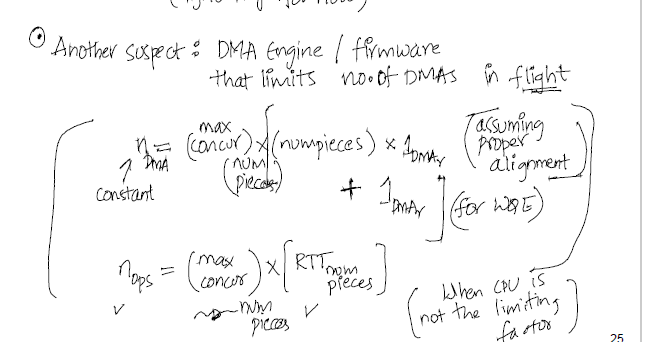 Another suspect: DMA Engine / firmware
that limits no. of DMAs in flight
n DMA = (max concur) num pieces × [(numpieces) × 1 DMAr (assuming proper alignment)
constant
+ 1 DMAr] (for WQE)
n ops = (max concur) num pieces × [RTT num pieces]
(When CPU is
not the limiting
factor)
25